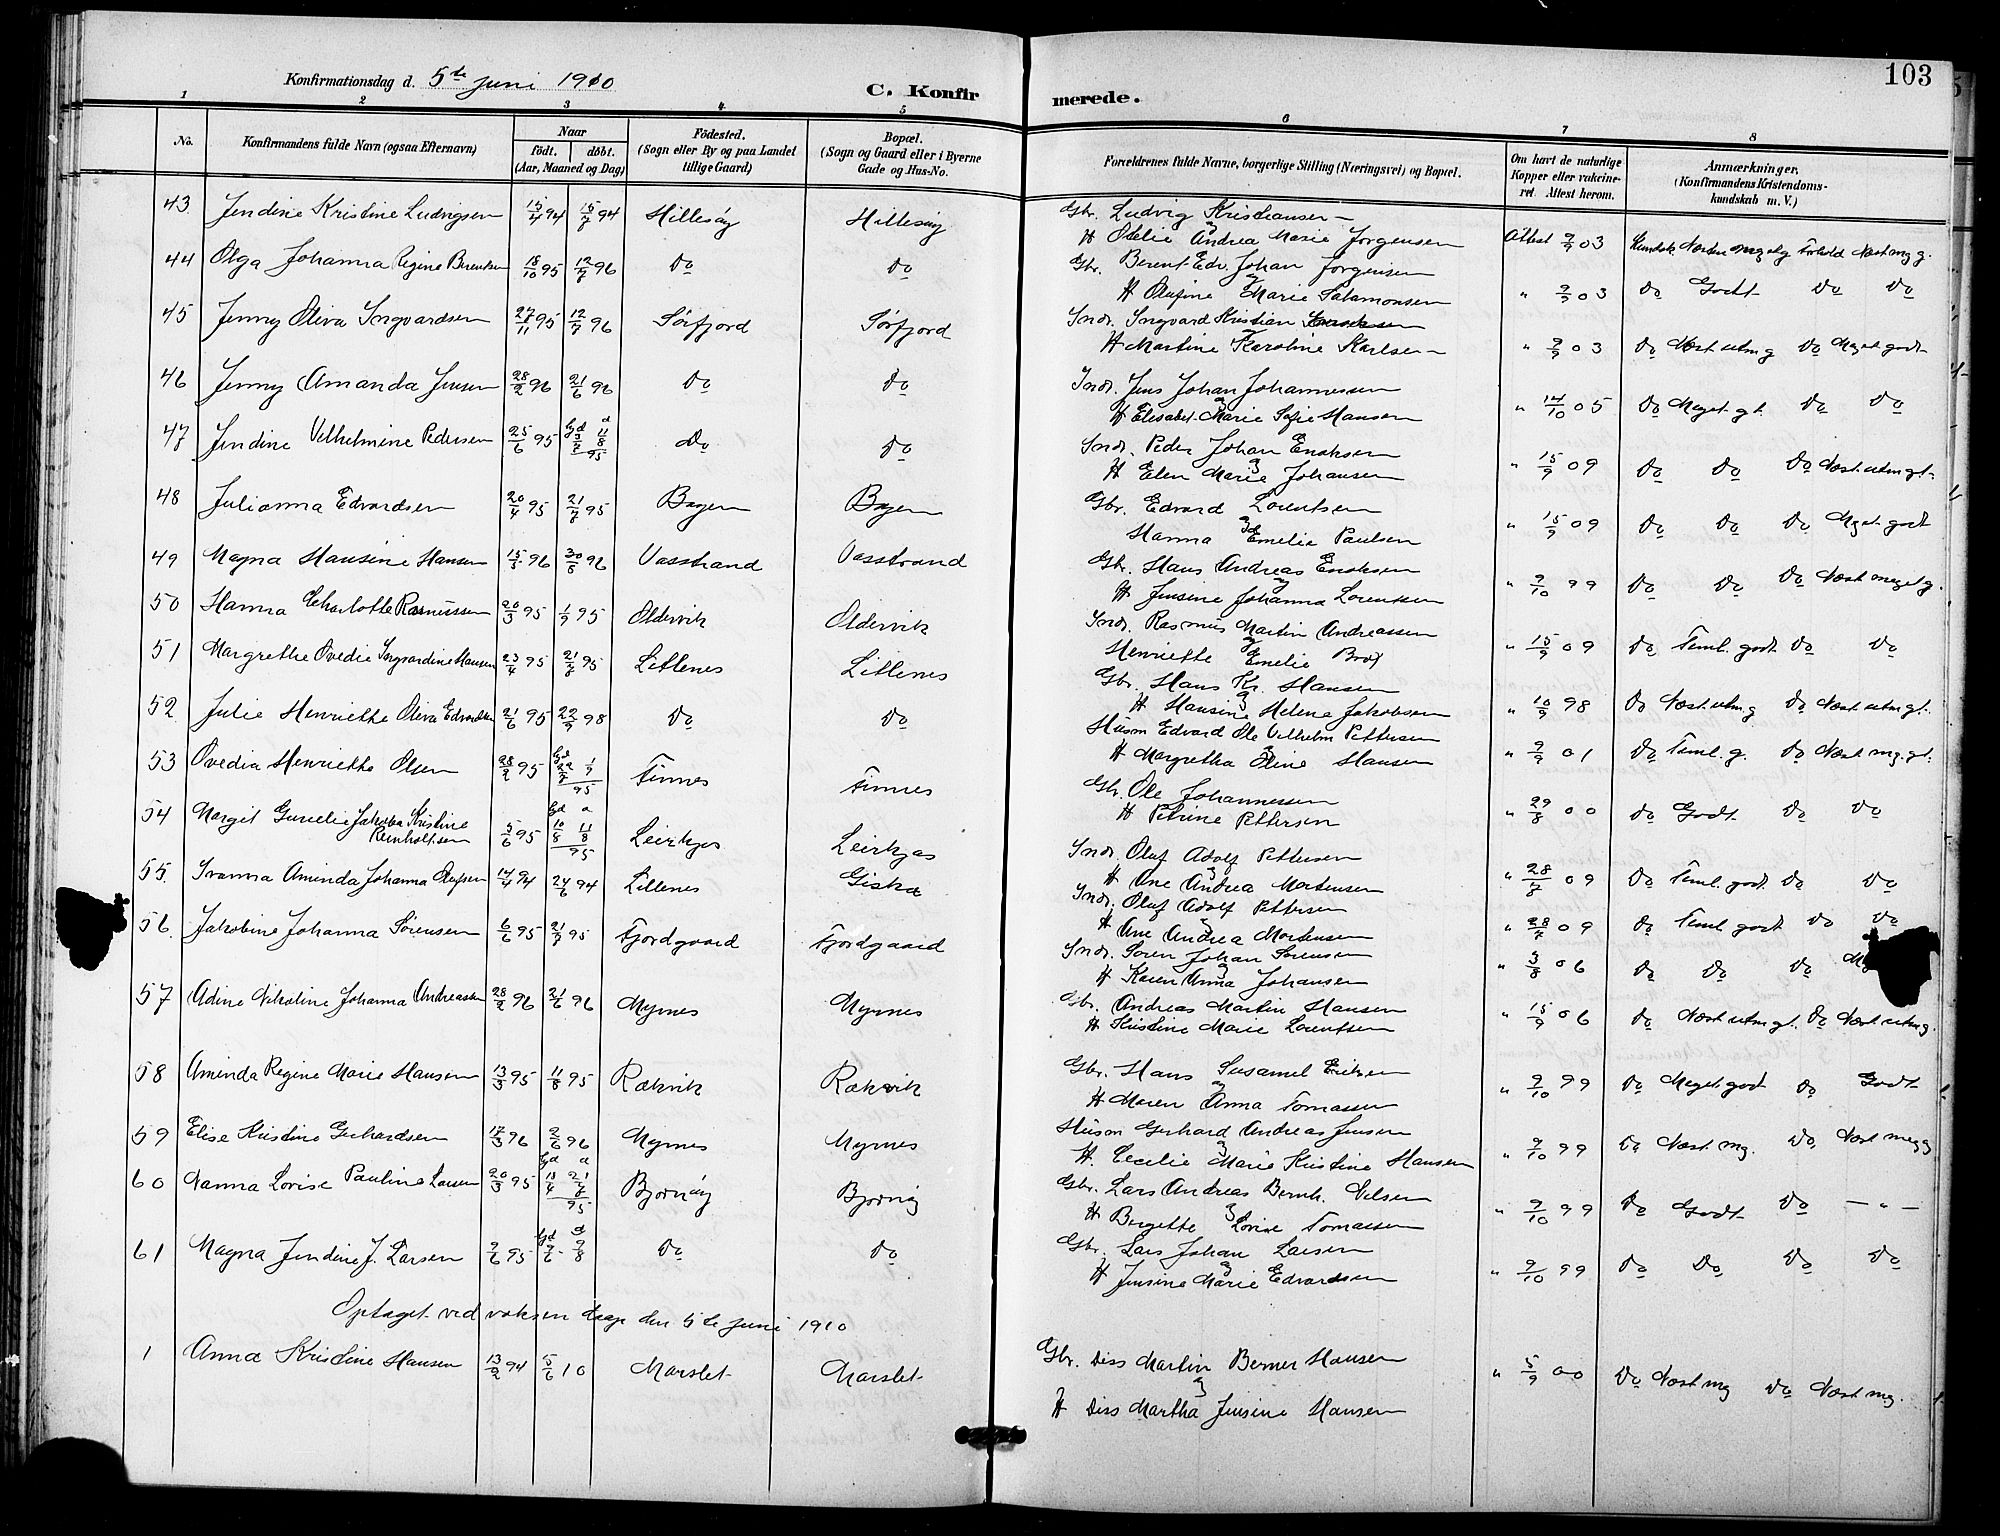 103
Konfirmationsdag d. 5te juni 1910
C. Konfirmerede.
1 2 3 4 5 6 7 8
No.
Konfirmandens fulde Navn (ogsaa Efternavn)
Naar
födt. döbt.
(Aar, Maaned og Dag)
Födested.
(Sogn eller By og paa Landet
tillige Gaard)
Bopæl.
(Sogn og Gaard eller i Byerne
Gade og Hus-No.
Forældrenes fulde Navne, borgerlige Stilling (Næringsvei) og Bopæl.
Om havt de naturlige
Kopper eller vakcine-
ret. Attest herom.
Anmærkninger.
(Konfirmandens Kristendoms-
kundskab m. V.)
43 Jendine Kristine Ludvigsen 15/4 94 15/7 94 Hillesöy Hillesöy Gbr. Ludvig Kristiansen
og H Otelie Andrea Marie Jörgensen Attest 9/9 03
44 Olga Johanna Regine Berentsen 18/10 95 12/7 96 Do Do Gbr. Berent Edv. Johan Jörgensen
H Olufine Marie Salamonsen " 9/9 03 Do Godt Do Do
45 Jenny Oliva Ingvardsen 27/11 95 12/7 96 Sörfjord Sörfjord Indr. Ingvard Kristian
og H Martine Karoline Karlsen " 9/9 03 Do Næst utm g Do Meget godt
46 Jenny Amanda Jensen 28/2 96 21/6 96 Do Do Indr. Jens Johan Johannessen
og H Elisabet Marie Sofie Hansen " 14/10 05 Do Meget gt. Do Do
47 Jendine Vilhelmine Pedersen 25/6 95 Gd d 11/8 95 Do Do Indr. Peder Johan Enoksen
og H Elen Marie Johansen " 15/9 09 Do Do Do Næst utm gt.
48 Julianna Edvardsen 20/4 95 21/7 95 Bagen Bagen Gbr. Edvard Lorentsen
og Hanna Emelie Paulsen " 15/9 09 Do Do Do Meget godt
49 Magna Hansine Hansen 15/3 96 30/8 96 Vasstrand Vasstrand Gbr. Hans Andreas Enoksen
og H Jensine Johanna Lorentsen " 9/10 99 Do Do Do Næst meget g.
50 Hanna Charlotte Rasmussen 20/3 95 1/9 95 Oldervik Oldervik Indr. Rasmus Martin Andreassen
og Henriette Emelie Brox " 15/9 09 Do Teml. godt Do Do
51 Margrethe Ovedie Ingvardine Hansen 23/4 95 21/7 95 Litlenes Litlenes Gbr. Hans Kr. Hansen
og H Hansine Helene Jakobsen " 10/9 98 Do Næst utm g Do Næst utm gt.
52 Julie Henriette Oliva Edvardsen 21/6 95 22/9 98 Do Do Husm Edvard Ole Vilhelm Pettersen
og H Margretha Eline Hansen " 9/9 01 Do Teml. g. Do Næst mg. gt.
53 Ovedia Henriette Olsen 28/2 95 Gd 1/9 95 Finnes Finnes Gbr. Ole Johannessen
H Petrine Pettersen " 29/8 00 Do Godt Do Do
54 Margit Gunelie Jakoba Kristine
Reinholtsen 5/6 95 Gd d 10/8 11/8 95 Leirkjos Leirkjos Indr. Oluf Adolf Pettersen
og H Ane Andrea Mortensen " 28/7 09 Do Teml. godt Do Do
55. Ivanna Aminda Johanna Olufsen 14/4 94 24/6 94 Lillenes Giska Indr. Oluf Adolf Pettersen
H Ane Andrea Mortensen " 28/7 09 Do Teml. godt Do Do
56. Jakobine Johanna Sörensen 6/6 95 21/7 95 Fjordgaard Fjordgaard Indr. Sören Johan Sörensen
og H Karen Anna Johansen " 3/8 06 Do Do Do
57 Adine Nikoline Johanna Andreassen 28/2 96 21/6 96 Myrnes Myrnes Gbr. Andreas Martin Hansen
H Kristine Marie Lorentsen " 15/9 06 Do Næst utm gt. Do Næst utm g.
58 Aminda Regine Marie Hansen 13/3 95 11/8 95 Rækvik Rækvik Gbr. Hans Susamel Eriksen
og H Maren Anna Tomassen " 9/10 99 Do Meget godt Do Godt
59 Elise Kristine Gerhardsen 17/3 96 2/6 96 Myrnes Myrnes Husm Gerhard Andreas Jensen
og H. Cecelie Marie Kristine Hansen " 9/10 99 Do Næst mg. Do Næst meg g
60 Nanna Lovise Pauline Larsen 20/3 95 Gd d 13/4 21/7 95 Bjornöy Bjornöy Gbr. Lars Andreas Bernh. Nilsen
og H Bergette Lovise Tomassen " 9/10 99 Do Godt Do — " —
61 Magna Jendine J. Larsen 2/6 95 Gd d 9/6 9/8 Do Do Gbr. Lars Johan Larsen
og H Jensine Marie Edvardsen " 9/10 99 Do Do Do Do
Optaget ved voksen daap den 5te juni 1910
1 Anna Kristine Hansen 13/2 94 5/6 10 Marslet Marslet Gbr. Diss Martin Berner Hansen
og
H Diss Martha Jensine Hansen " 5/9 00 Do Næst mg Do Næst mg.